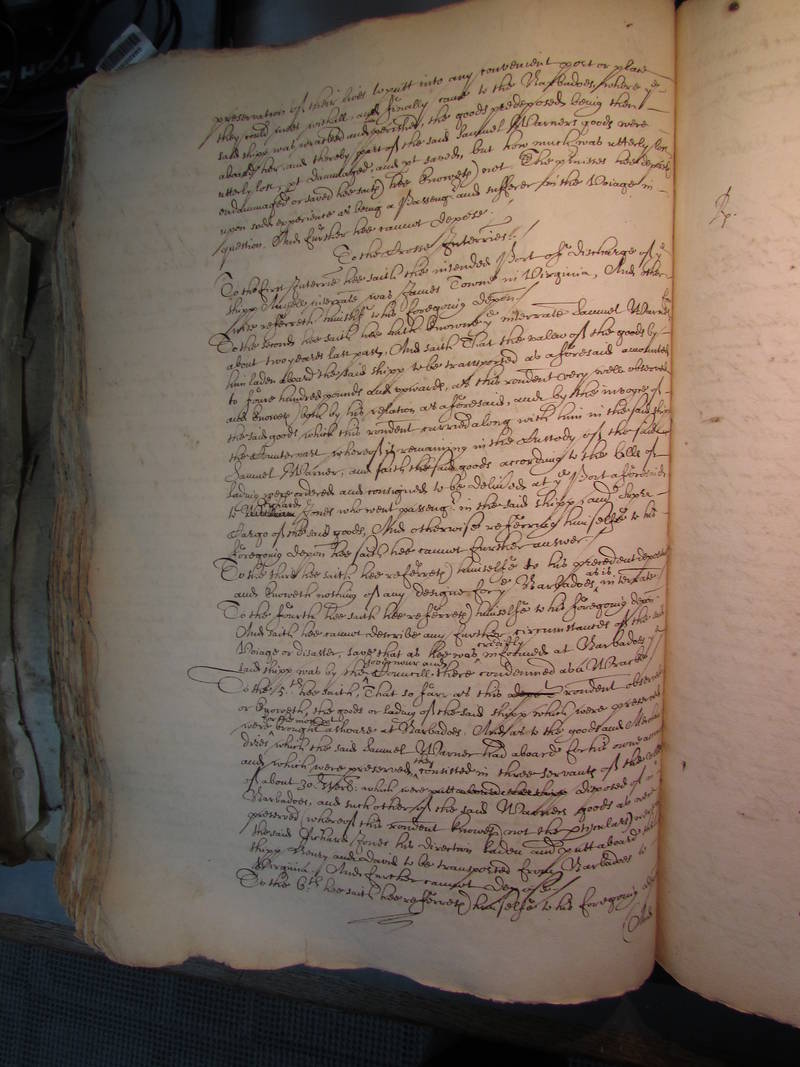 preservation of their lives to putt into any convenient port or place
they could meet withall, and soe finally came to the Barbadoes, where ye
said shipp was wracked and perished, the goods predeposed being then
aboard her, and thereby part of the said Samuel Warners goods were
utterly lost, pt damnaged, and pt saved, but how much was utterly lost
endammaged or saved hee saith hee knoweth not. The pmisses hee deposeth
upon sade experience as being a Passengr and sufferer in the Voiage in
question. And further hee cannot depose.
To the Crosse Interries.
To the first Interrie hee saith the intended Port of discharge of ye
shipp Angell interrate was James Towne in Virginia, And otherwise
referreth himselfe to his foregoing depon
To the second hee saith hee hath knowne ye interrate Samuel Warner
about two yeares last past, And saith That the valew of the goods by
him laden aboard the said shipp to be transported as aforesaid amounted
to foure hundred pounds and upwards, as this rondent very well observed
and knoweth both by his relation as aforesaid, and by the invoyce of
the said goods which this rondent carried along with him in the said shipp
the Counterpart whereof is remaining in the Custody of the said
Samuel Warner, and saith the said goods according to the bills of
lading were ordered and consigned to be delivered at ye Port aforesaid
to Richard Jones who went passengr in the said shipp, and Supra-
Cargo of the said goods, And otherwise referring himselfe to his
foregoing depon hee saith hee cannot further answer.
To the third hee saith hee referreth himselfe to his precedent deposition
and knoweth nothing of any designe for ye Barbadoes, as is interrate
To the fourth hee saith hee referreth himselfe to his foregoing depon
And saith hee cannot describe any further circumstances of the said
Voiage or disaster, save that as hee was credibly informed at Barbadoes ye
said shipp was by the Governour and Councill there condemned as a Wracke
To the 5.th hee saith, That so farr as this rondent observed
or knoweth, the goods or lading of the said shipp which were preserved
were for the most pt brought ashoare at Barbadoes. And as to the goods and Merchan
dizes which the said Samuel Warner had aboard for his owne account
and which were preserved, they consisted in three servants of the
of about 30. li which were disposed of in
Barbadoes, and such other of the said Warners goods as were
preserved (whereof this rondent knoweth not the pticulars) were by
the said Richard Jones his direction laden and putt aboard the
shipp Henry and David to be transported from Barbadoes to
Virginia. And further cannot depose.
To the 6.th hee saith hee referreth himselfe to his foregoing depon
And